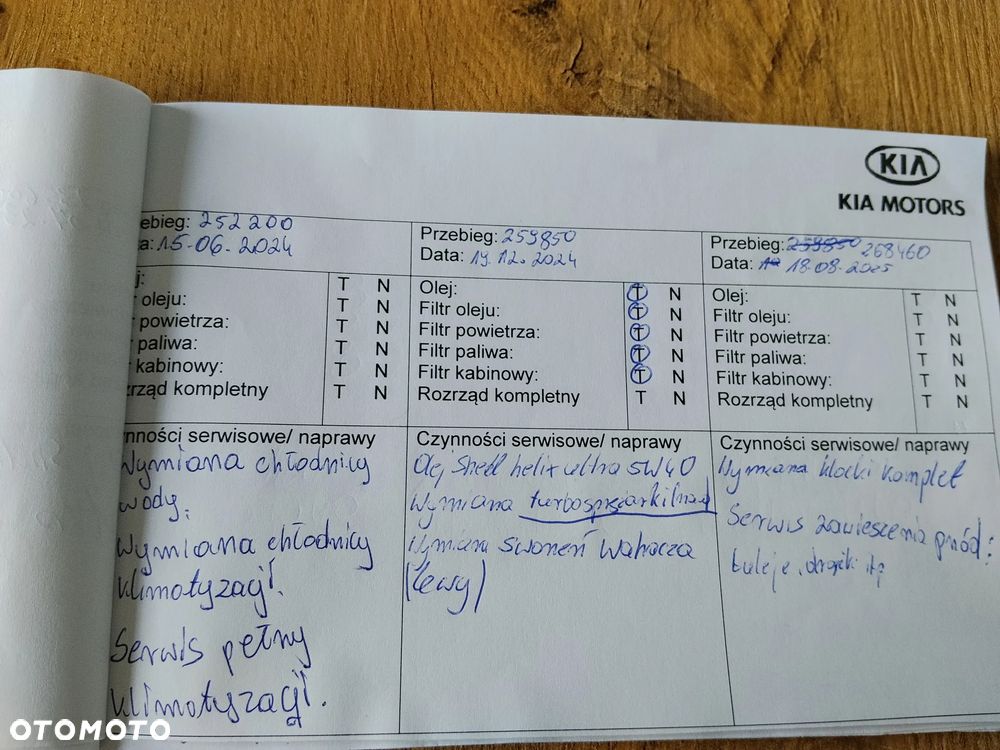 KIA
KIA MOTORS
ebieg: 252200
a: 15-06-2024
j:
oleju:
powietrza:
paliwa:
kabinowy:
rząd kompletny
T N
T N
T N
T N
T N
T N
nności serwisowe/ naprawy
Wymiana chłodnicy
wody.
Wymiana chłodnicy
klimatyzacji.
Serwis pełny
klimatyzacji.
Przebieg: 259850
Data: 19.12.2024
Olej: T N
Filtr oleju: T N
Filtr powietrza: T N
Filtr paliwa: T N
Filtr kabinowy: T N
Rozrząd kompletny T N
Czynności serwisowe/ naprawy
Olej Shell helix ultra 5W40
Wymiana
Wymiana sworzeń Wahacza
(lewy)
Przebieg: 259850 268460
Data: 18.08.2025
Olej: T N
Filtr oleju: T N
Filtr powietrza: T N
Filtr paliwa: T N
Filtr kabinowy: T N
Rozrząd kompletny T N
Czynności serwisowe/ naprawy
Wymiana klocki komplet
Serwis zawieszenia przód:
tuleje, drążki itp
OTOMOTO